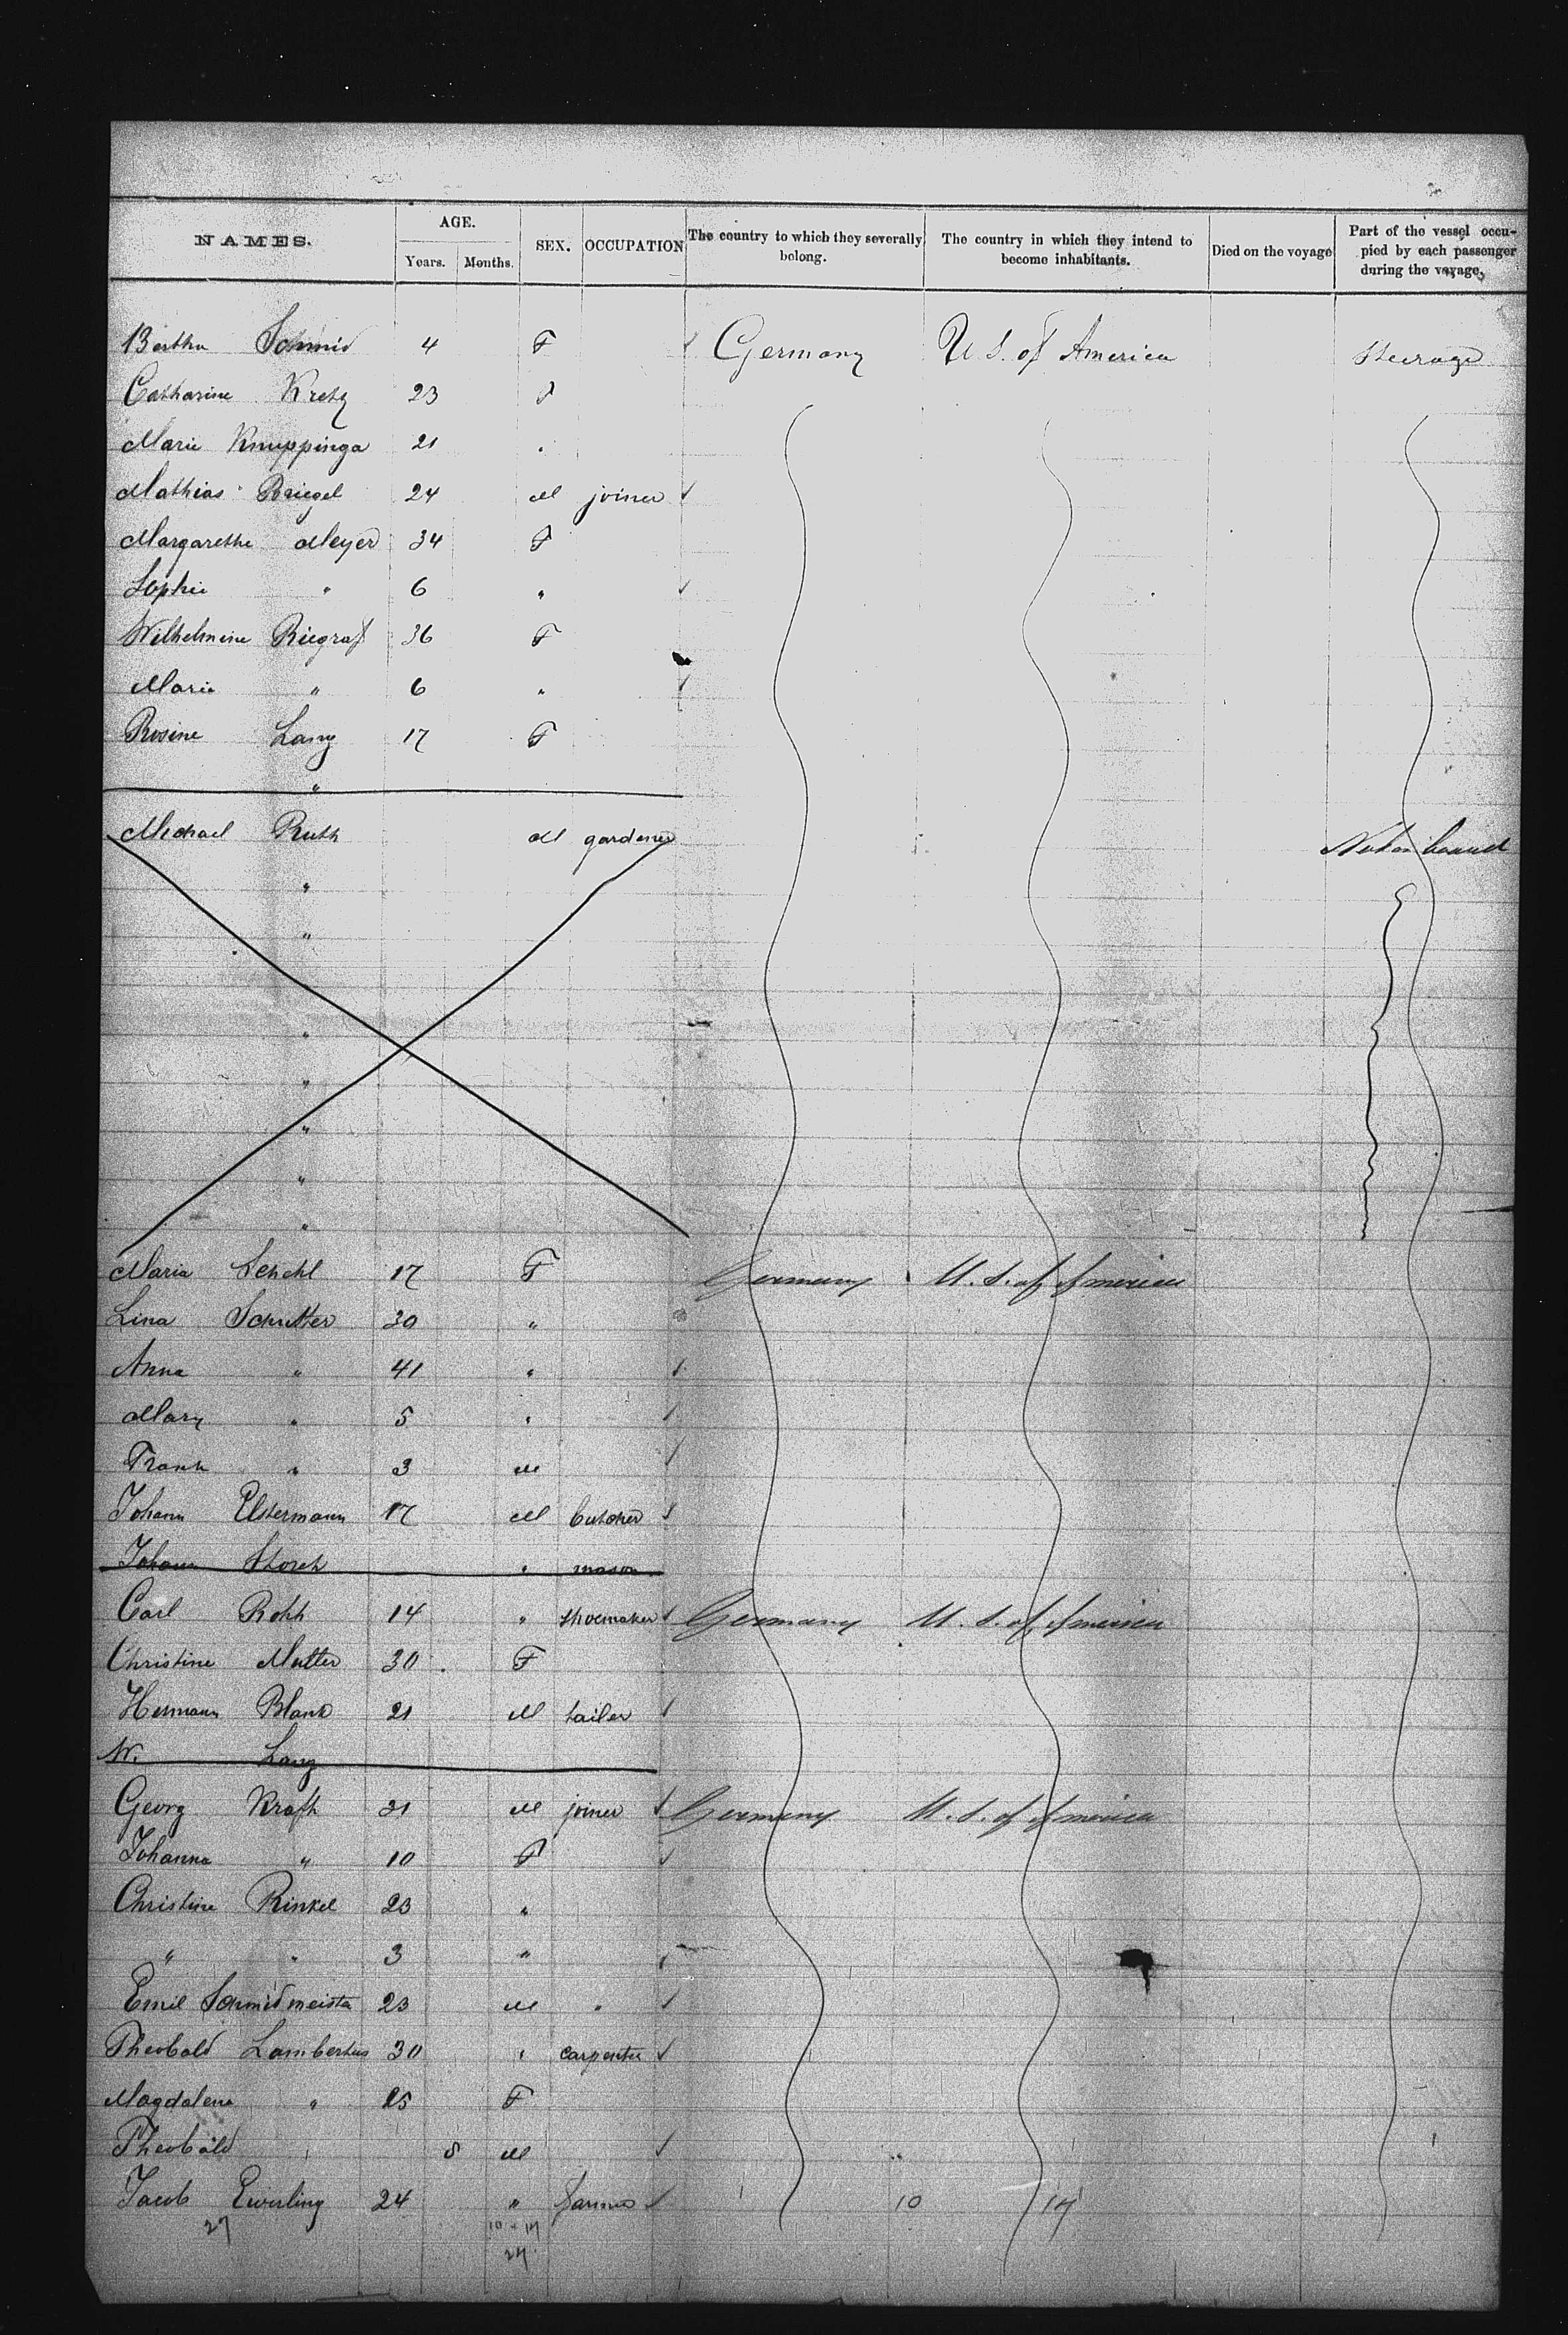 NAMES. AGE. Years. Months. SEX. OCCUPATION The country to which they severally belong. The country in which they intend to become inhabitants. Died on the voyage Part of the vessel occupied by each passenger during the voyage.
Bertha Schmid 4 F Germany U S. of America Steerage
Catharine Kretz 23 F
Marie Knuppinga 21 "
Mathias Briegel 24 M joiner
Margarethe Meyer 34 F
Sophie " 6 "
Wilhelmine Riegraf 36 F
Marie " 6 "
Rosine Lang 17 F
"
Michael Ruth M gardener Not on board
"
"
"
"
"
"
"
Maria Schehl 17 F Germany U. S. of America
Lina Schritter 30 "
Anna " 41 "
Mary " 5 "
Frank " 3 M
Johann Elstermann 17 M butcher
Johann Storch " mason
Carl Rohh 14 " shoemaker Germany U. S. of America
Christine Mutter 30 F
Hermann Blank 21 M tailer
W. Lang
Georg Kraft 21 M joiner Germany U. S. of America
Johanna " 10 F
Christine Rinkel 23 "
" " 3 "
Emil Schmidmeister 23 M "
Theobald Lambertus 30 " carpenter
Magdalena " 25 F
Theobald " 8 M
Jacob Ewerling 24 " farmer 10 14
27 10 + 14
24